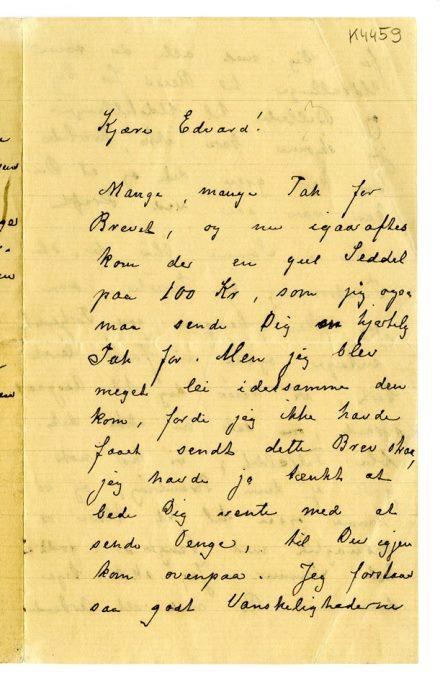 K4459
Kjære Edvard!
Mange, mange Tak for
Brevet, og nu igaaraftes
kom der en gul Seddel
paa 100 Kr, som jeg ogsaa
maa sende Dig en hjertelig
Tak for. Men jeg blev
meget lei idetsamme den
kom, fordi jeg ikke havde
faaet sendt dette Brev,
jeg havde jo tænkt at
bede Dig vente med at
sende Penge, til Du igjen
kom ovenpaa. Jeg forstaar
saa godt Vanskelighederne